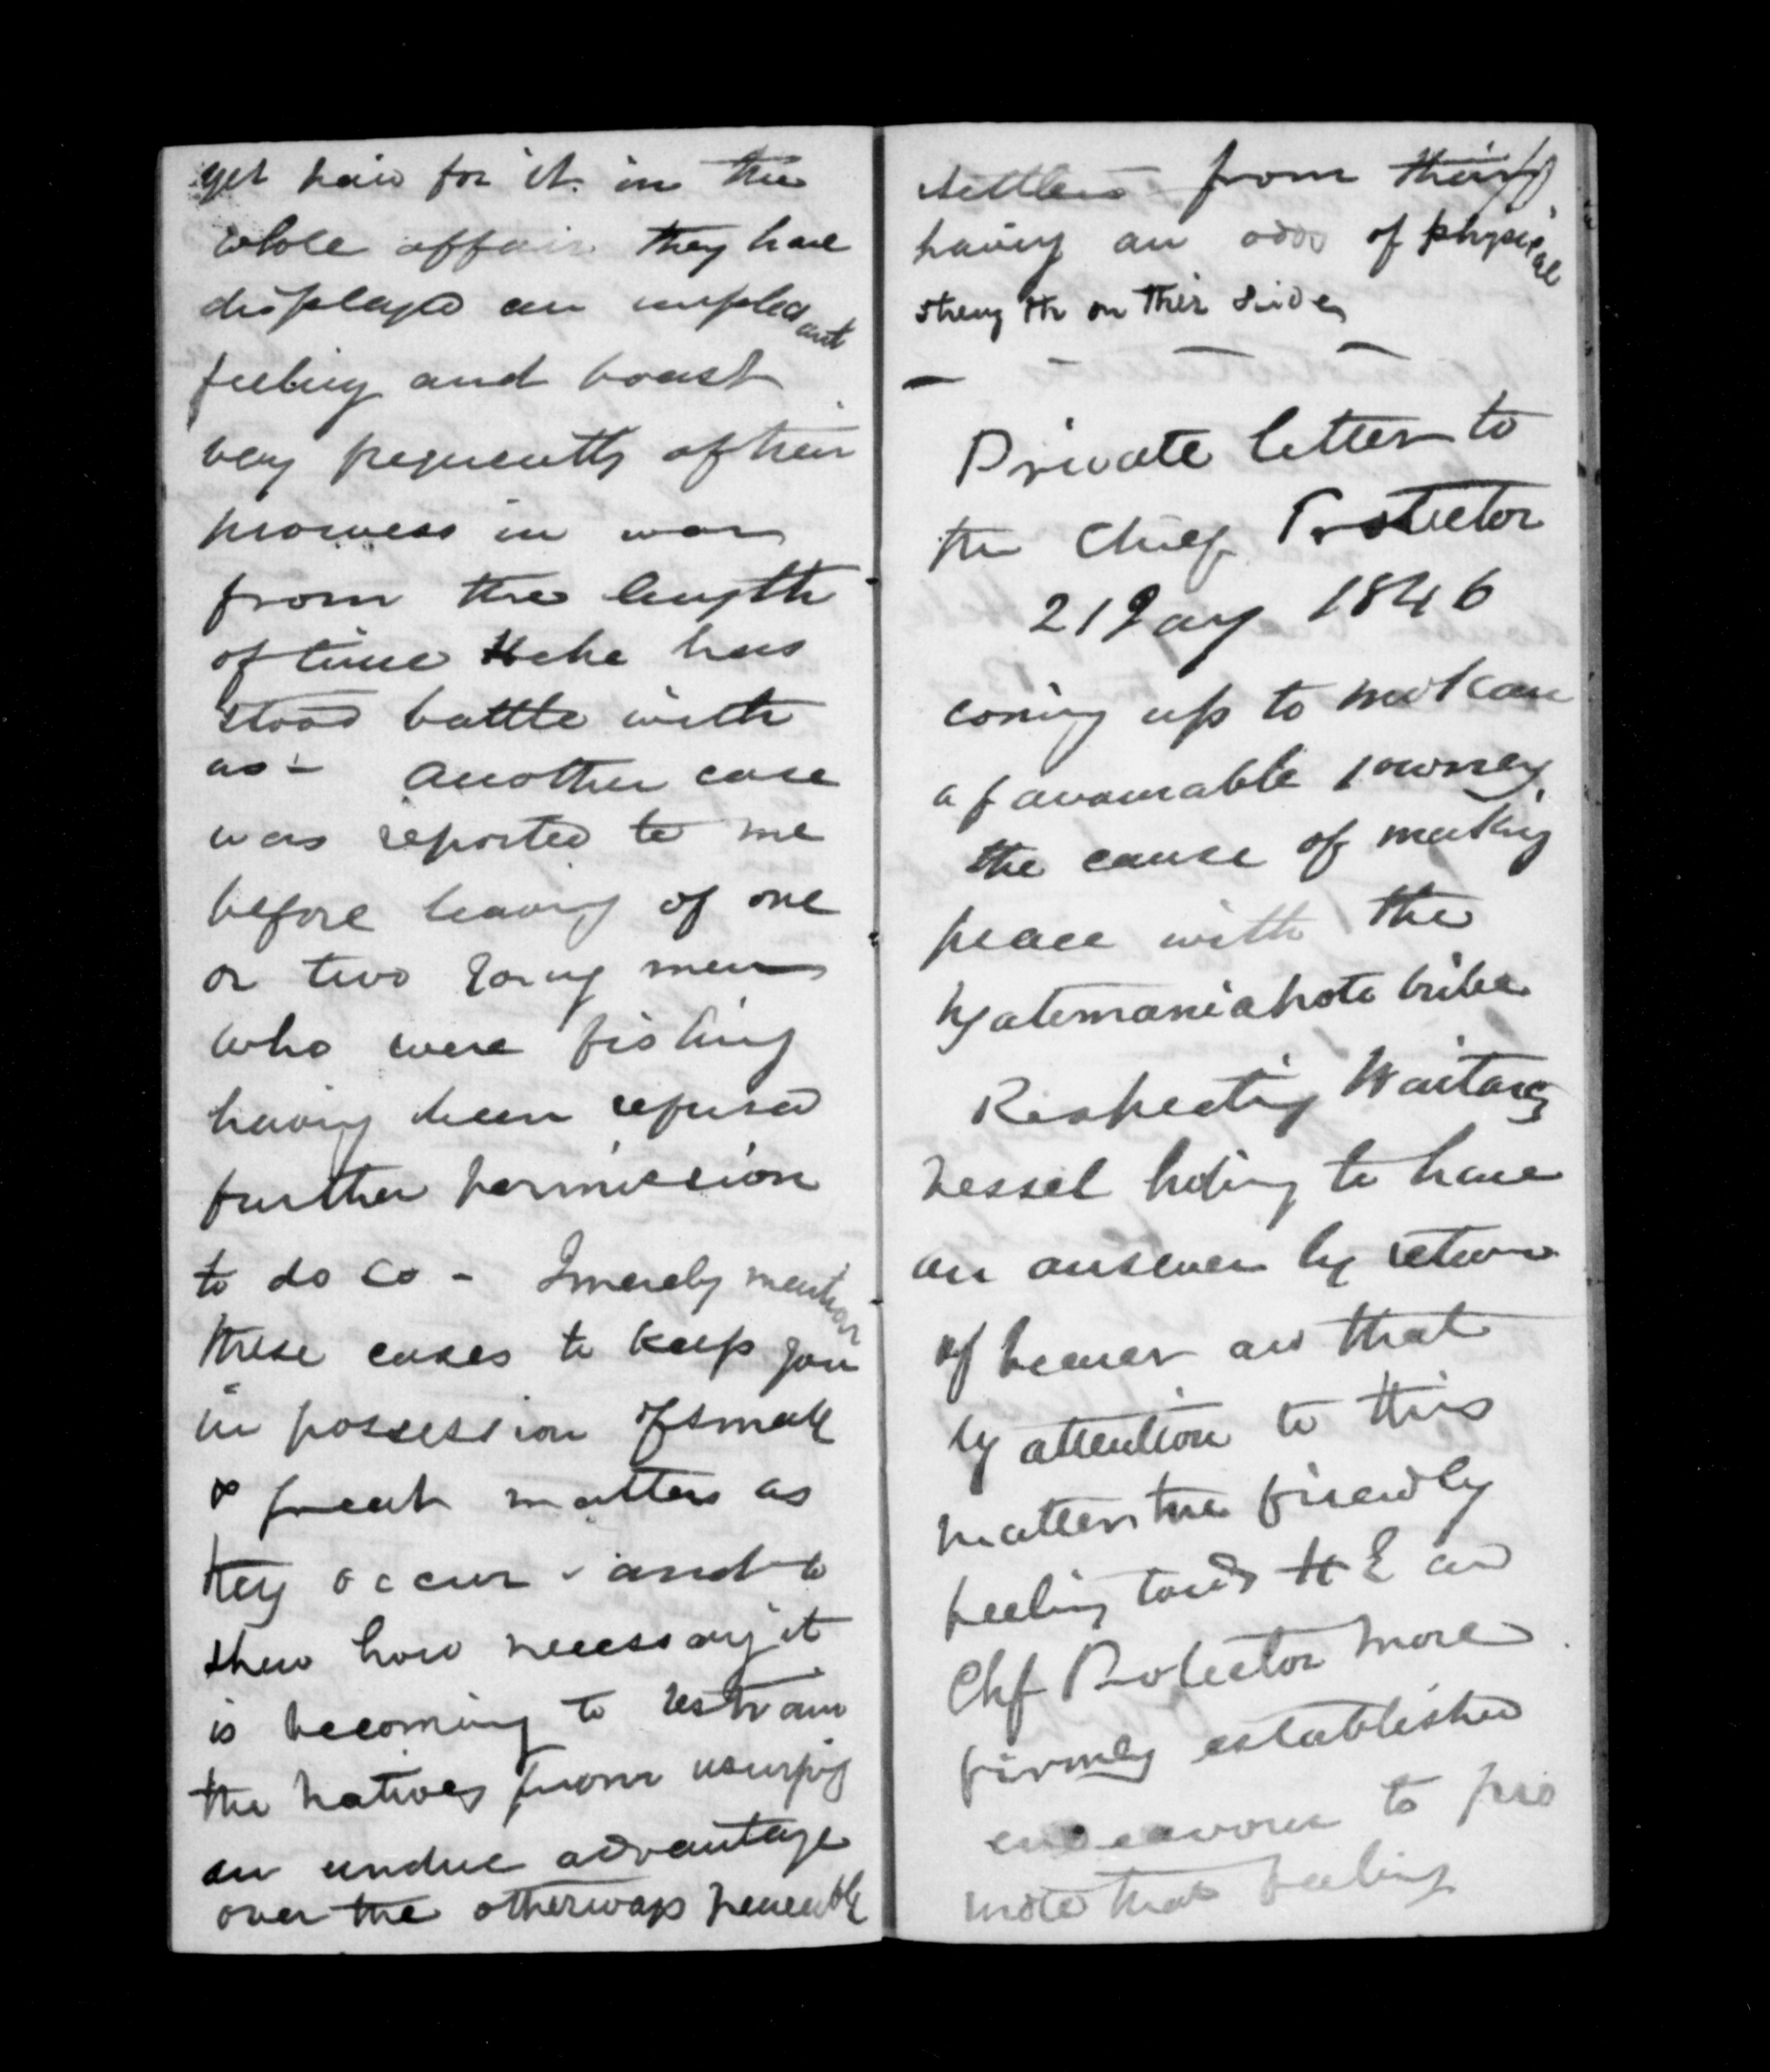 get paid for it. in the
whole affair they have
displayed an unpleasant
feeling and boast
very frequently of their
prowess in war
from the length
of time Heke has
stood battle with
us - Another case
was reported to me
before leaving of one
or two young men
who were fishing
having been refused
further permission
to do so - I merely mention
these cases to keep you
in possession of small
& great matters as
they occur - and to
shew how necessary it
is becoming to restrain
the natives from usurping
an undue advantage
over the otherways peaceable
settlers from their
having an odds of physical
strength on their side,
Private letter to
the Chief Protector
21 Jany 1846
coming up to
a favourable journey
the cause of making
peace with the
Ngatimaniapoto tribe
Respecting
vessel hoping to have
an answer by return
of bearer and that
by attention to this
matter the friendly
feeling towds H E and
Chf Protector more
firmly established
endeavour to pro
mote that feeling